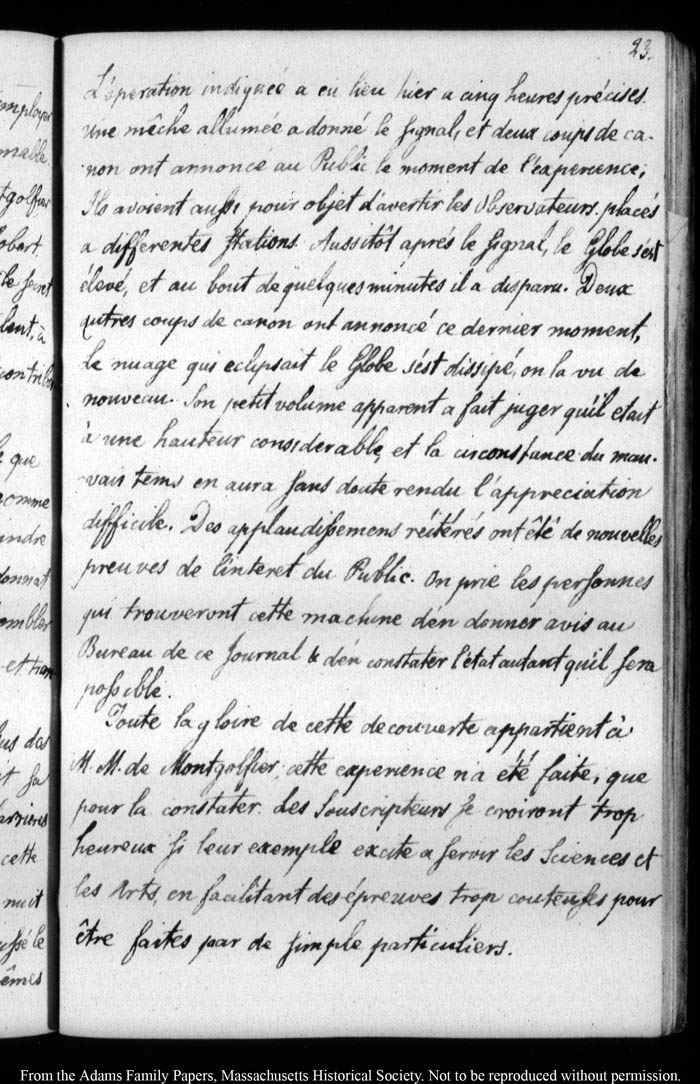 23.
L'óperation indiquée a eu lieu hier a cinq heures précises.
Une mêche allumée a donné le signal, et deux coups de ca-
non ont annoncé au Public le moment de l'éxperience;
Ils avoient aussi pour objet d'avertir les Observateurs placés
a differentes Stations. Aussitôt aprés le signal, le Globe s'est
élevé, et au bout de quelques minutes il a disparu. Deux
autres coups de canon ont annoncé ce dernier moment,
Le nuage qui eclipsait le Globe s'ést dissipé, on la vu de
nouveau. Son petit volume apparent a fait juger qu'il etait
à une hauteur considerable, et la circonstance du mau-
vais tems en aura sans doute rendu l'appreciation
difficile. Des applaudissemens réitérés ont été de nouvelles
preuves de l'interet du Public. On prie les personnes
qui trouveront cette machine d'én donner avis au
Bureau de ce Journal & d'én constater l'état autant qu'il sera
possible.
Toute la gloire de cette decouverte appartient à
M. M. de Montgolfier; cette experience n'a eté faite, que
pour la constater. Les Souscripteurs se croiront trop
heureux si leur exemple excite a servir les Sciences et
les Arts, en facilitant des épreuves trop couteuses pour
être faites par de simple particuliers.
employer
mable.
tgolfier
obert,
le secret
lent, à
contribu
que
comme
indre
donnat
ombler
et tran
us das
it sa
cette
nuit
ussé le
êmes
From the Adams Family Papers, Massachusetts Historical Society. Not to be reproduced without permission.